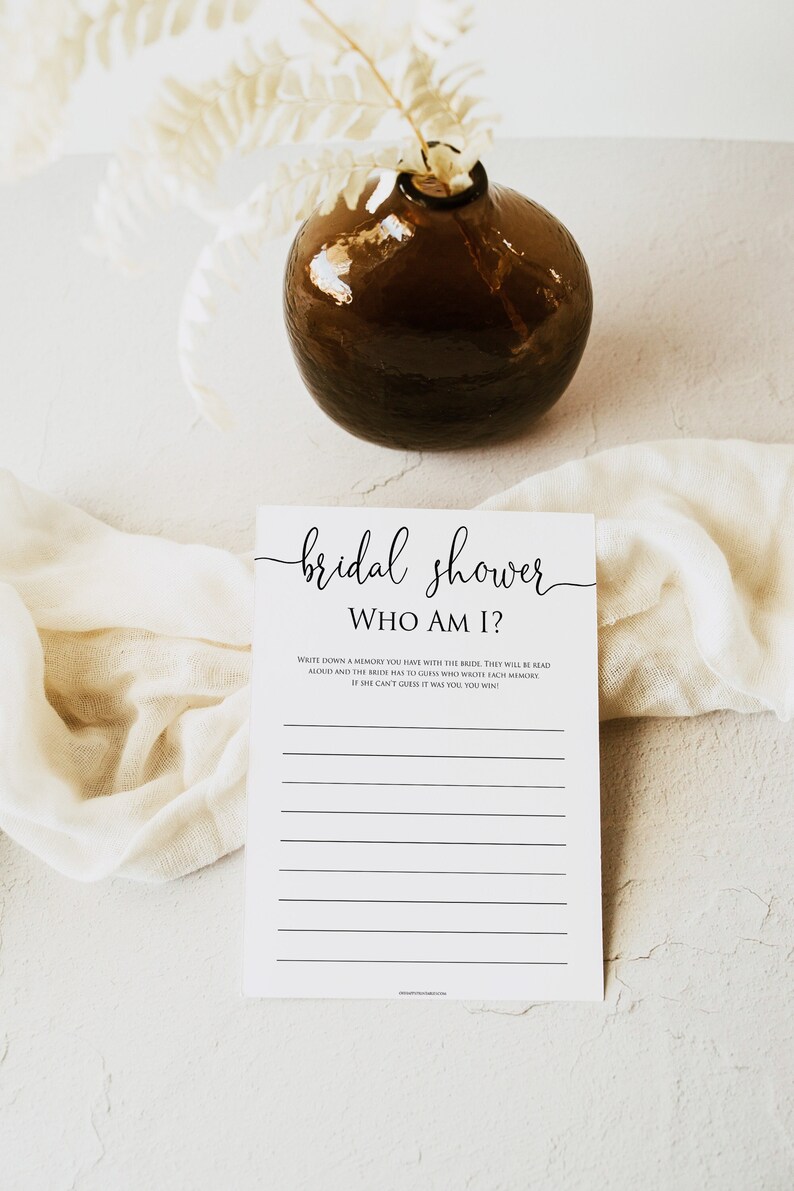 bridal shower
Who Am I?
Write down a memory you have with the bride. They will be read
aloud and the bride has to guess who wrote each memory.
If she can't guess it was you, you win!